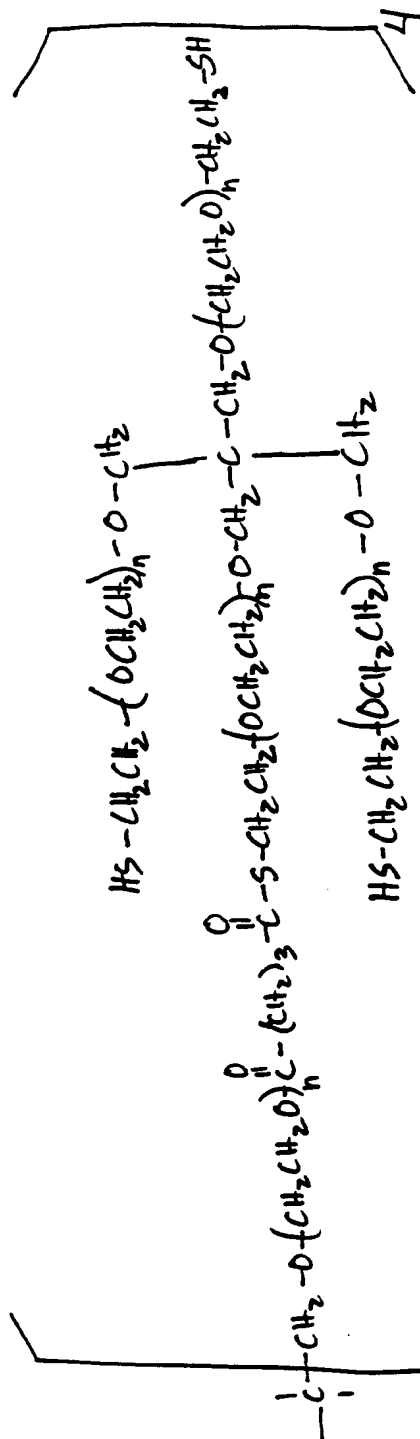 HS-CH₂CH₂-(OCH₂CH₂)ₙ-O-CH₂
O O
-C-CH₂-O-(CH₂CH₂O)ₙ-C-(CH₂)₃-C-S-CH₂CH₂-(OCH₂CH₂)ₙ-O-CH₂-C-CH₂-O-(CH₂CH₂O)ₙ-CH₂CH₂-SH
HS-CH₂CH₂-(OCH₂CH₂)ₙ-O-CH₂
4